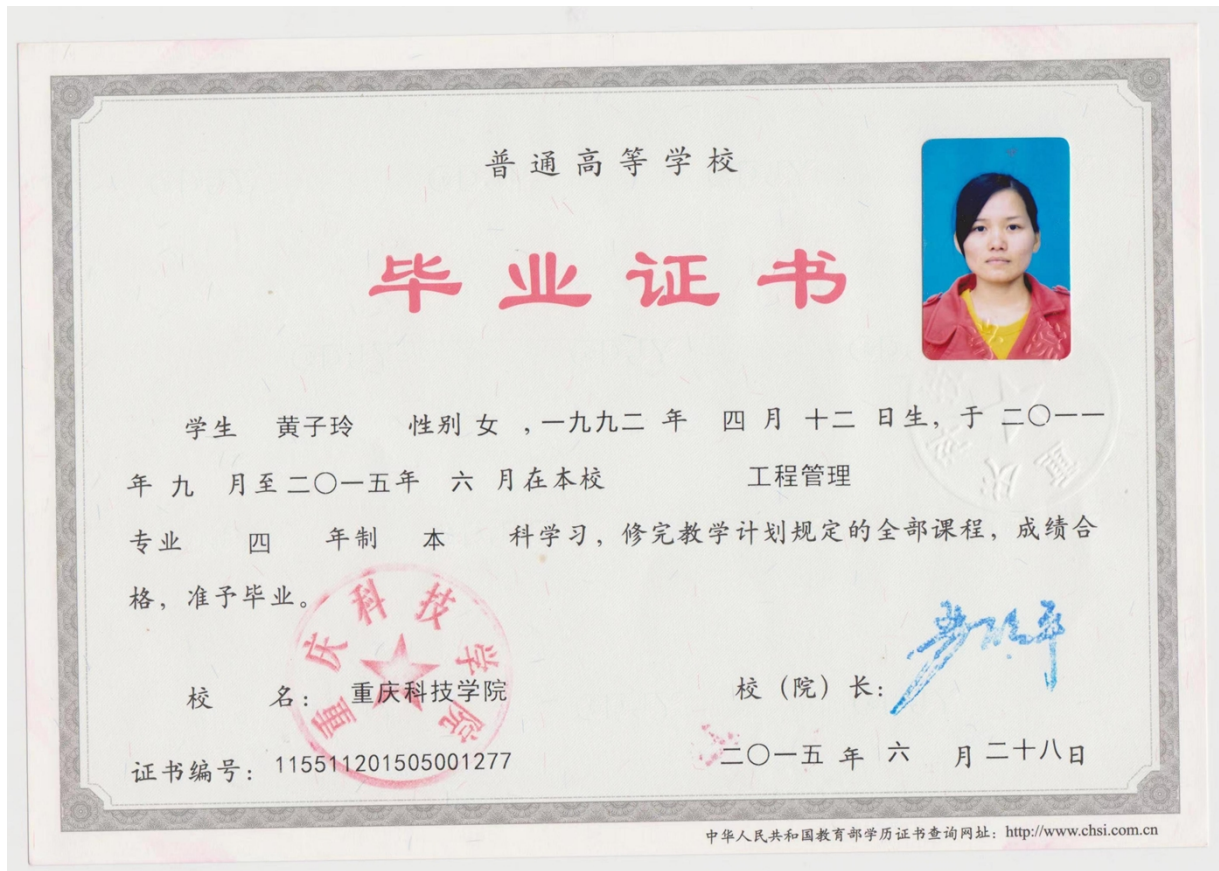 普通高等学校
毕业证书
学生 黄子玲 性别 女 ,一九九二 年 四 月 十二 日生，于 二〇一一
年 九 月至 二〇一五年 六 月在本校 工程管理
专业 四 年制 本 科学习，修完教学计划规定的全部课程，成绩合
格，准予毕业。
重庆科技学院
校 名： 重庆科技学院
校（院）长：
证书编号： 115511201505001277
二〇一五 年 六 月 二十八日
中华人民共和国教育部学历证书查询网址：http://www.chsi.com.cn